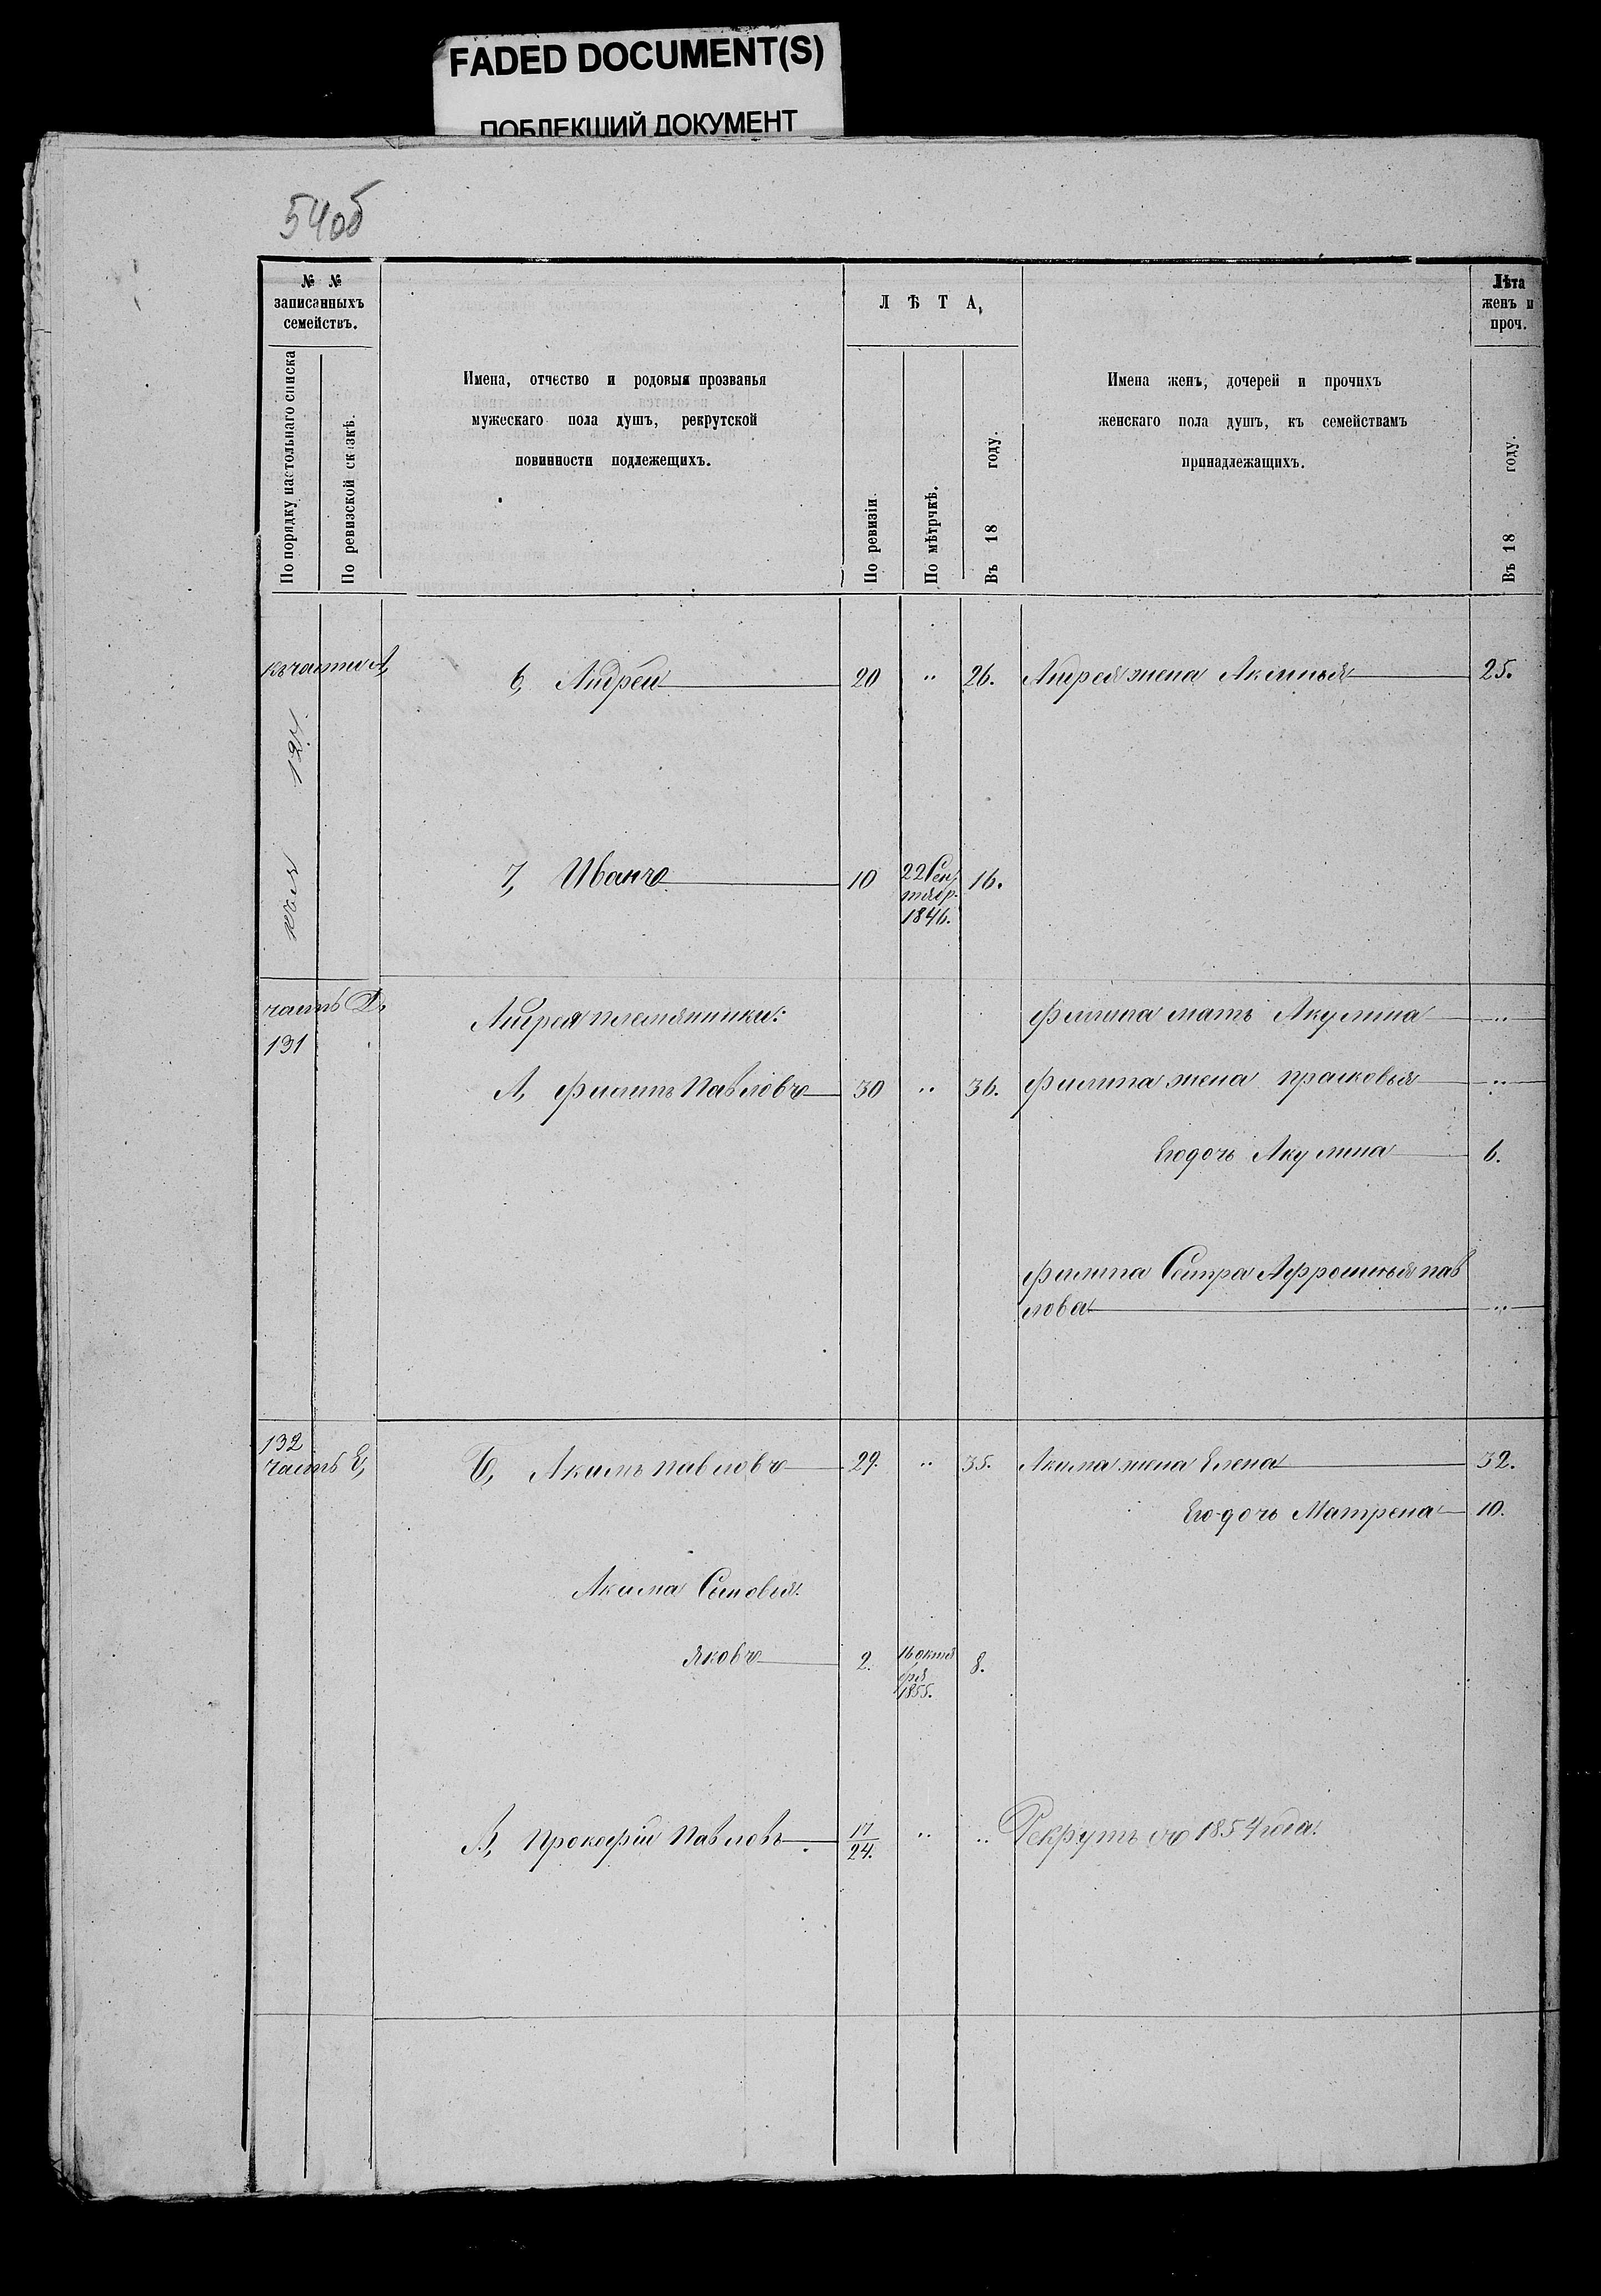 FADED DOCUMENT(S)
ПОБЛЕКШИЙ ДОКУМЕНТ
54об
№ №
записанныхъ
семействъ.
По порядку настольнаго списка
По ревизской сказкѣ.
Имена, отчество и родовыя прозванья
мужескаго пола душъ, рекрутской
повинности подлежещихъ.
ЛѢТА,
По ревизіи
По мѣтрчкѣ.
Въ 18 году.
Имена женъ, дочерей и прочихъ
женскаго пола душъ, къ семействамъ
принадлежащихъ.
Лѣта
женъ и
проч.
Въ 18 году.
къ части А,
124.
6, Андрей 20 " 26. Андрея жена Аксинья 25.
7, Иванъ 10 22 Сен
тябр.
1846. 16.
часть Д,
131
Андрея племянники:
Филипа мать Акулина "
А, Филипъ Павловъ 30 " 36. Филипа жена прасковья "
Его дочь Акулина 6.
Филипа Сестра Афросинья пав
лова "
132
часть Е,
Б, Акимъ павловъ 29. " 35. Акима жена Елена 32.
Его дочь Матрена 10.
Акима Сыновья:
Яковъ 2. 16 октя
бря
1855. 8.
В, Прокофій Павловъ 17
24. " " Рекрутъ съ 1854 года.